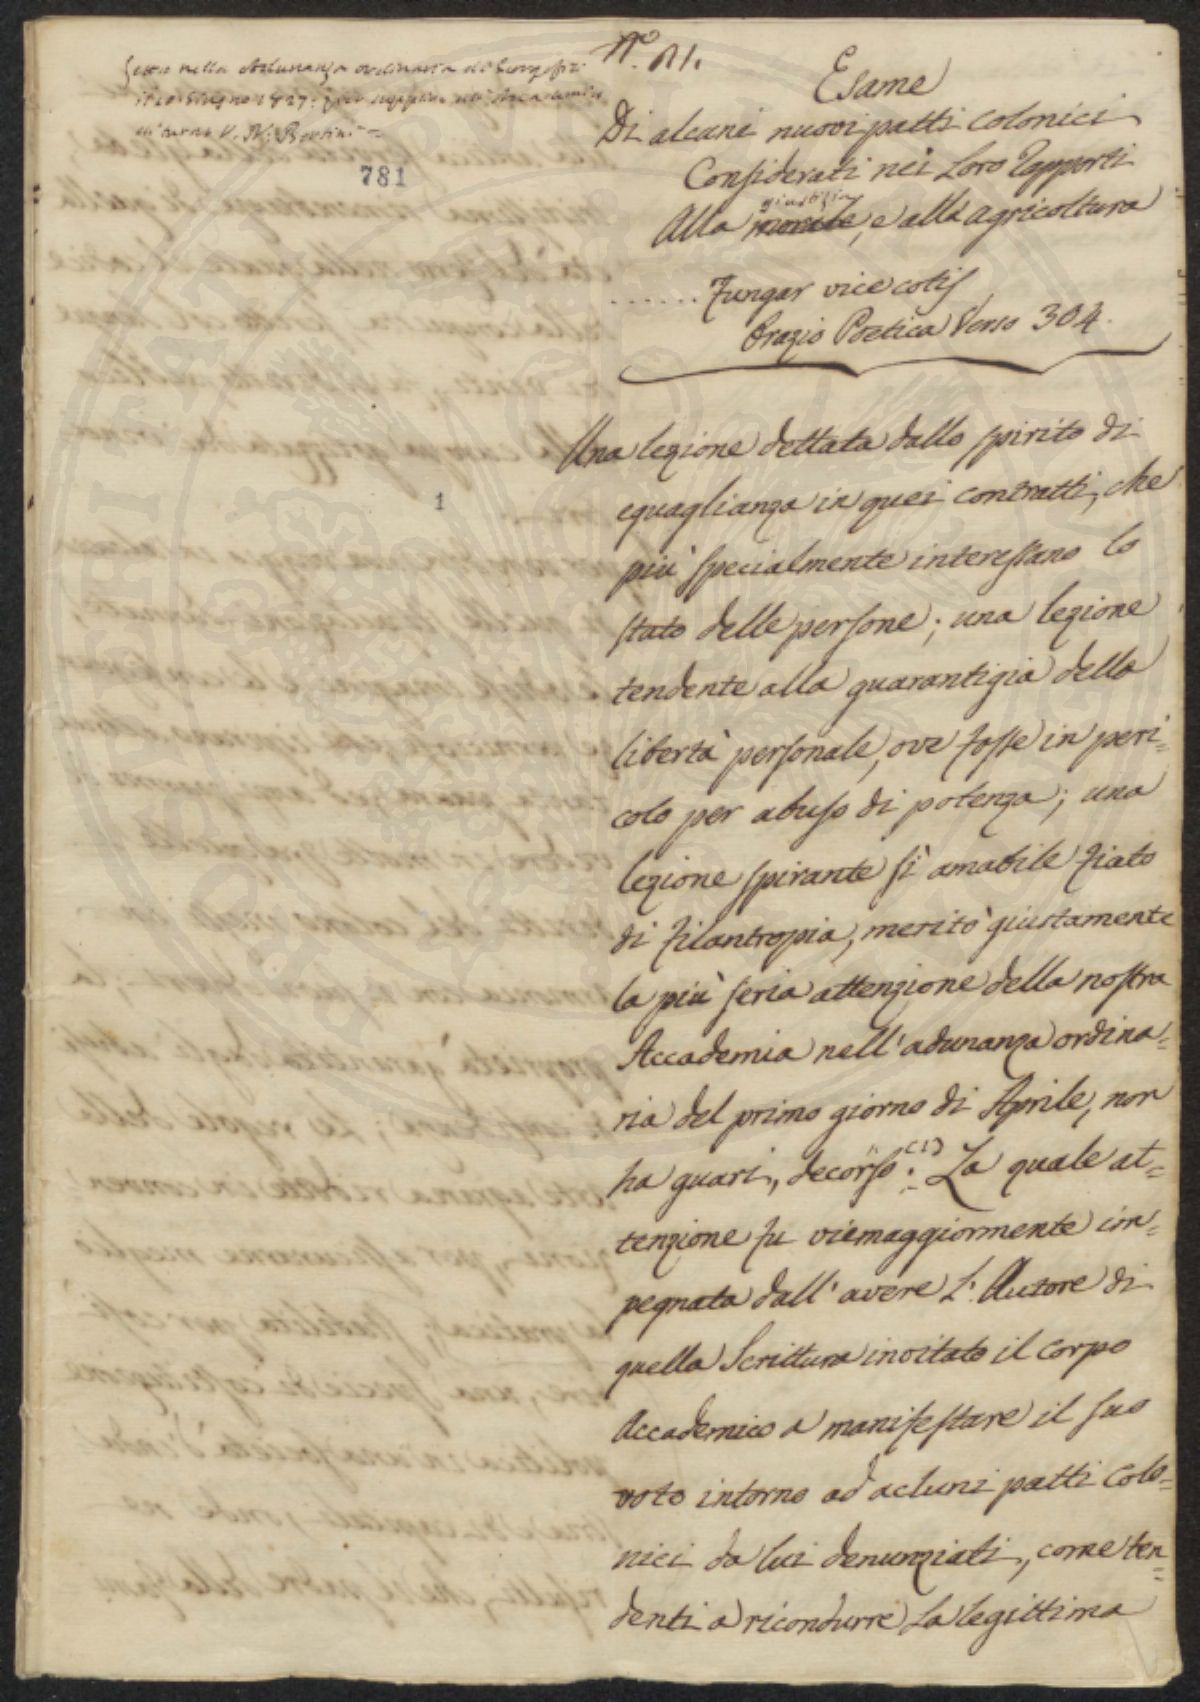 Letta nella Adunanza ordinaria de' Georgofili
il 10 Giugno 1827: per supplire all' Accademico
di turno V. N. Bertini =
781
N.º 21.
Esame
Di alcuni nuovi patti colonici
Considerati nei Loro Rapporti
giustizia
Alla morale, e alla agricoltura
....... Fungar vice cotis
Orazio Poetica Verso 304.
1
Una lezione dettata dallo spirito di
eguaglianza in quei contratti, che
più specialmente interessano lo
stato delle persone; una lezione
tendente alla guarantigia della
libertà personale, ove fosse in peri=
colo per abuso di potenza; una
lezione spirante sì amabile fiato
di filantropia, meritò giustamente
la più seria attenzione della nostra
Accademia nell' adunanza ordina=
ria del primo giorno di Aprile, non
ha guari, decorso (1). La quale at=
tenzione fu viemaggiormente im=
pegnata dall' avere L' Autore di
quella Scrittura invitato il corpo
Accademico a manifestare il suo
voto intorno ad acluni patti Colo=
nici da lui denunziati, come ten=
denti a ricondurre La legittima